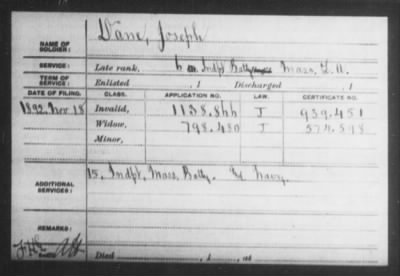 NAME OF SOLDIER: Dane, Joseph
SERVICE: Late rank, Indpt Batty Mass. L. A.
TERM OF SERVICE: Enlisted , 1 Discharged , 1
DATE OF FILING. CLASS. APPLICATION NO. LAW. CERTIFICATE NO.
1892 Nov 18 Invalid, 1138.866 J 939.451
Widow, 798.480 J
Minor,
ADDITIONAL SERVICES: 15. Indpt. Mass. Batty. Navy
REMARKS:
Died , 1 , at